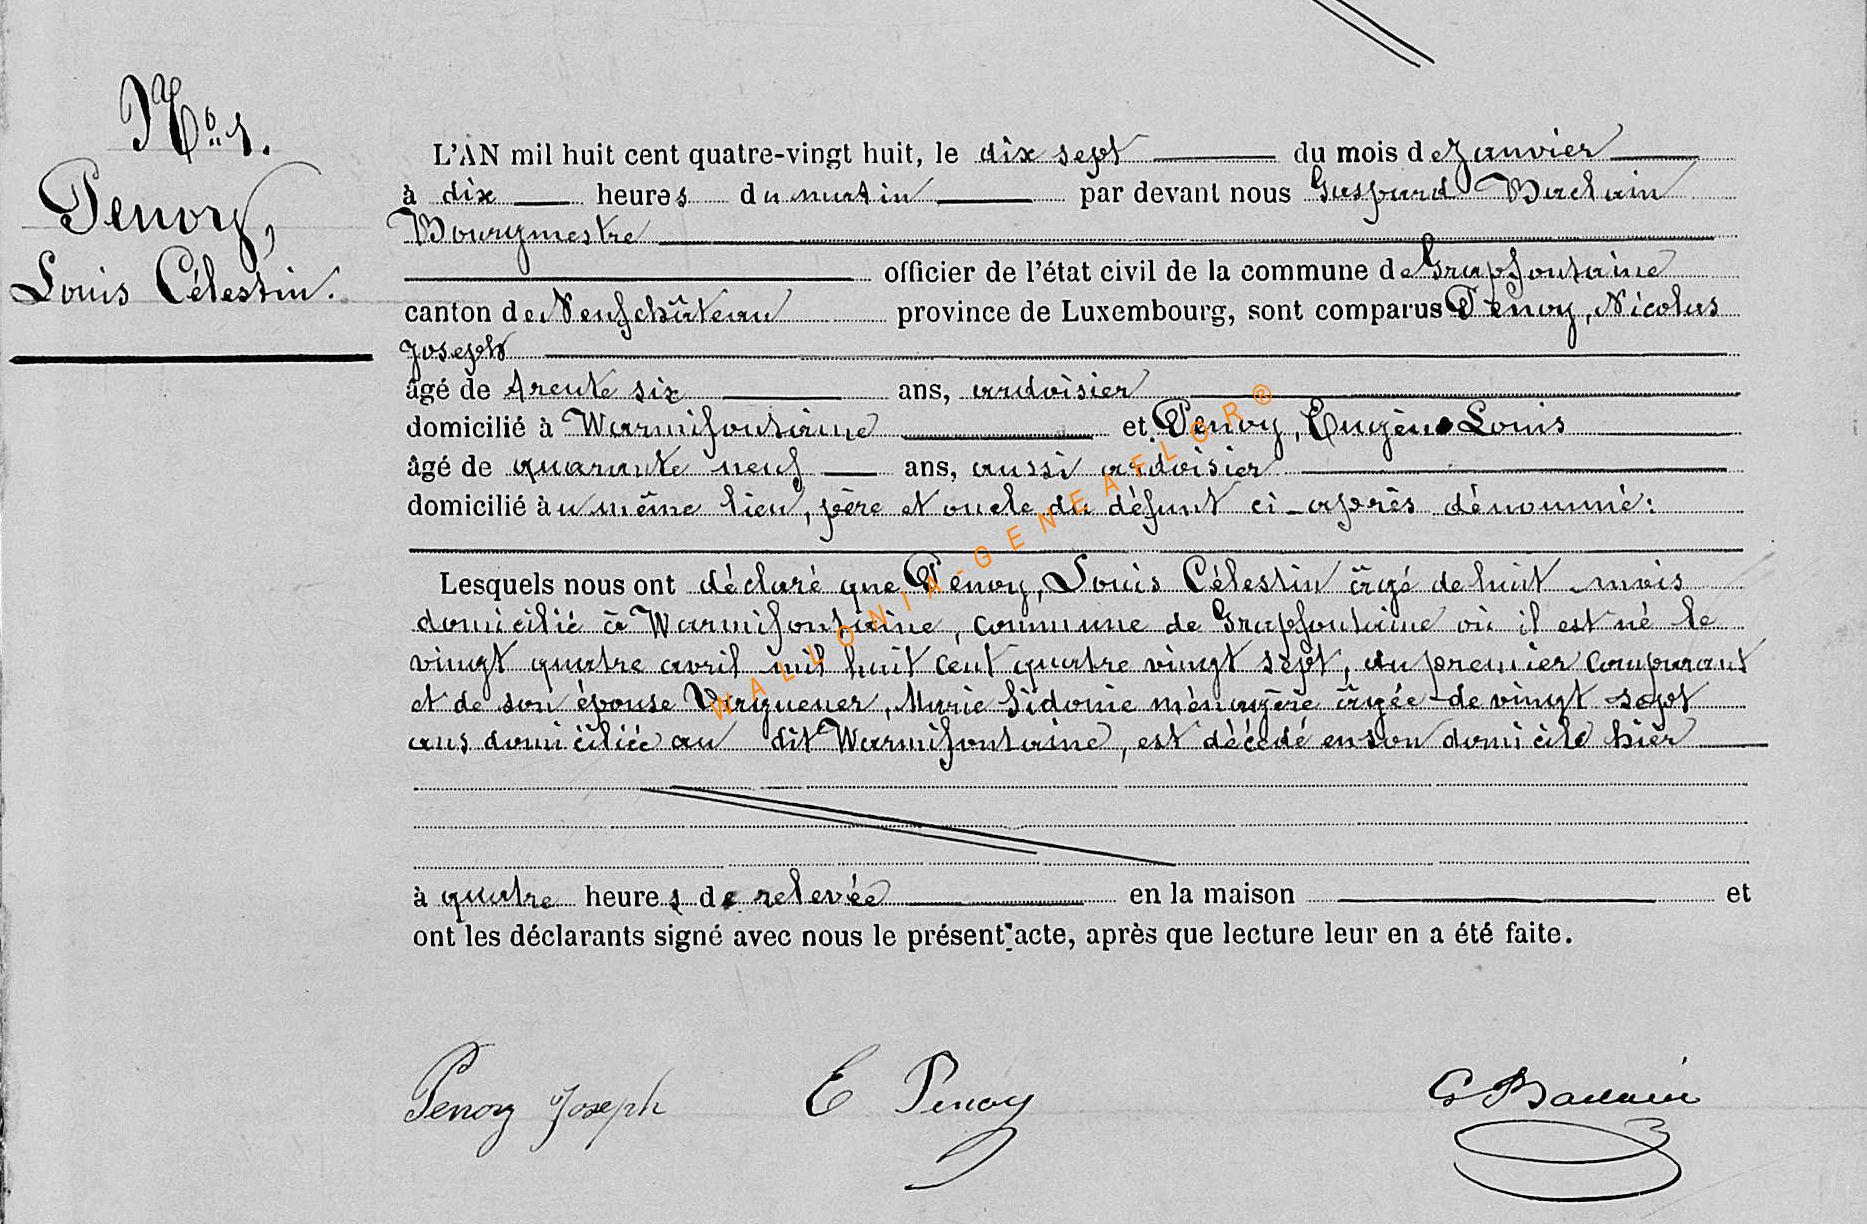 No 1.
Penoy,
Louis Célestin.
L'AN mil huit cent quatre-vingt huit, le dix sept du mois de Janvier
à dix heures du matin par devant nous Gaspard Baclain
Bourgmestre
officier de l'état civil de la commune de Grapfontaine
canton de Neufchâteau province de Luxembourg, sont comparus Penoy, Nicolas
Joseph
âgé de trente six ans, ardoisier
domicilié à Warmifontaine et Penoy, Eugène Louis
âgé de quarante neuf ans, aussi ardoisier
domicilié au même lieu, père et oncle du défunt ci-après dénommé:
Lesquels nous ont déclaré que Penoy, Louis Célestin âgé de huit mois
domicilié à Warmifontaine, commune de Grapfontaine où il est né le
vingt quatre avril mil huit cent quatre vingt sept, du premier comparant
et de son épouse Marie Sidonie ménagère âgée de vingt sept
ans domiciliée au dit Warmifontaine, est décédé en son domicile hier
à quatre heures de relevée en la maison et
ont les déclarants signé avec nous le présent acte, après que lecture leur en a été faite.
Penoy Joseph E Penoy G Baclain
WALLONIA-GENEAFLGR®